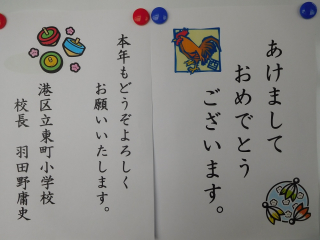 あけまして
おめでとう
ございます。
本年もどうぞよろしく
お願いいたします。
港区立東町小学校
校長 羽田野庸史